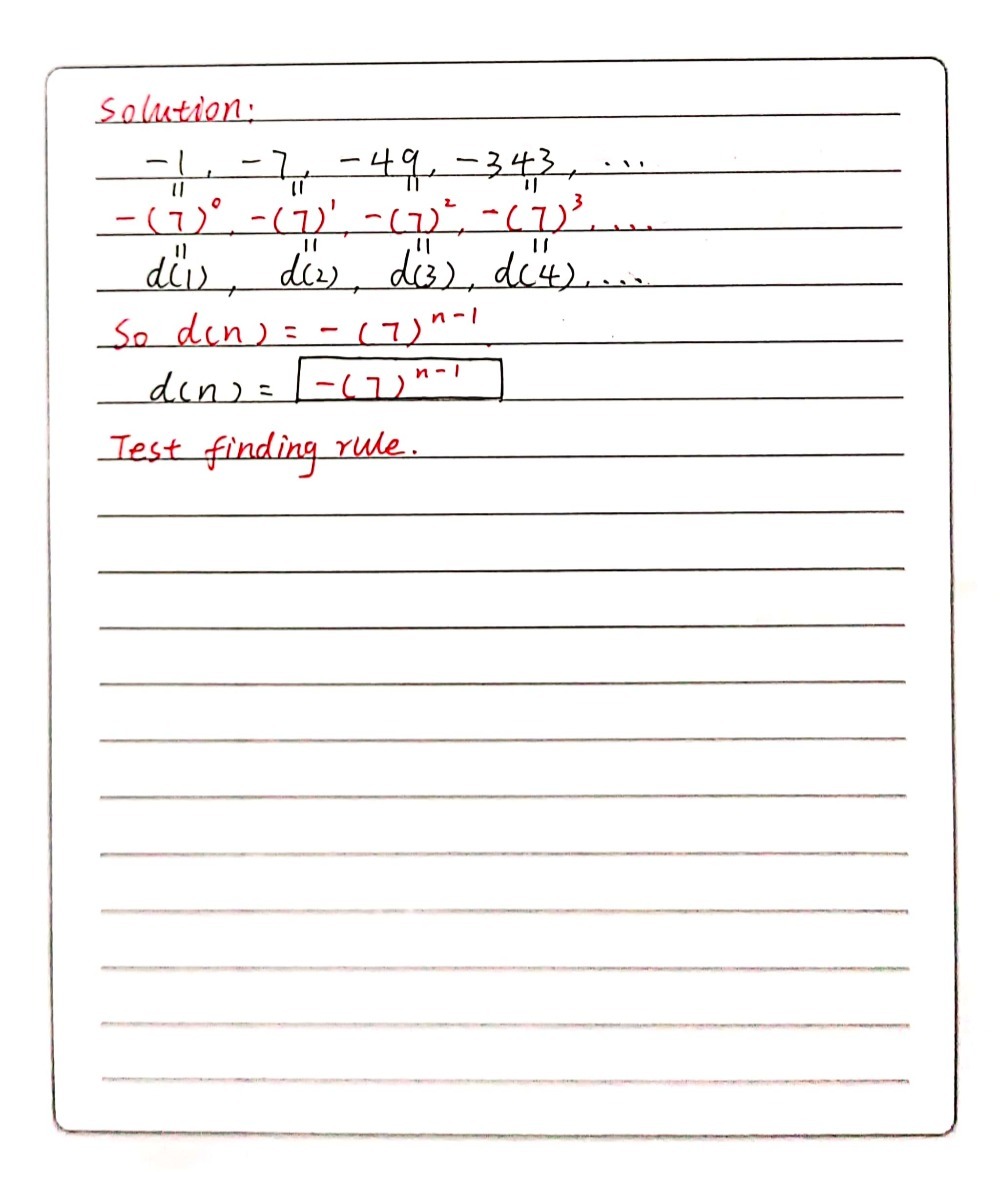 Solution:
-1, -7, -49, -343, ...
= = = =
-(7)⁰, -(7)¹, -(7)², -(7)³, ....
= = = =
d(1), d(2), d(3), d(4), ....
So d(n) = -(7)ⁿ⁻¹
d(n) = -(7)ⁿ⁻¹
Test finding rule.